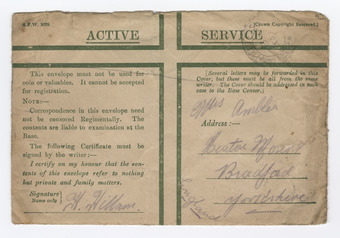 A.F.W. 3078
[Crown Copyright Reserved.]
ACTIVE SERVICE
This envelope must not be used for
coin or valuables. It cannot be accepted
for registration.
NOTE:—
Correspondence in this envelope need
not be censored Regimentally. The
contents are liable to examination at the
Base.
The following Certificate must be
signed by the writer:—
I certify on my honour that the con-
tents of this envelope refer to nothing
but private and family matters.
Signature
Name only
W. Williams
[Several letters may be forwarded in this
Cover, but these must be all from the same
writer. The Cover should be addressed in such
case to the Base Censor.]
Mrs Ambler
Address:—
Bradford
Yorkshire
England